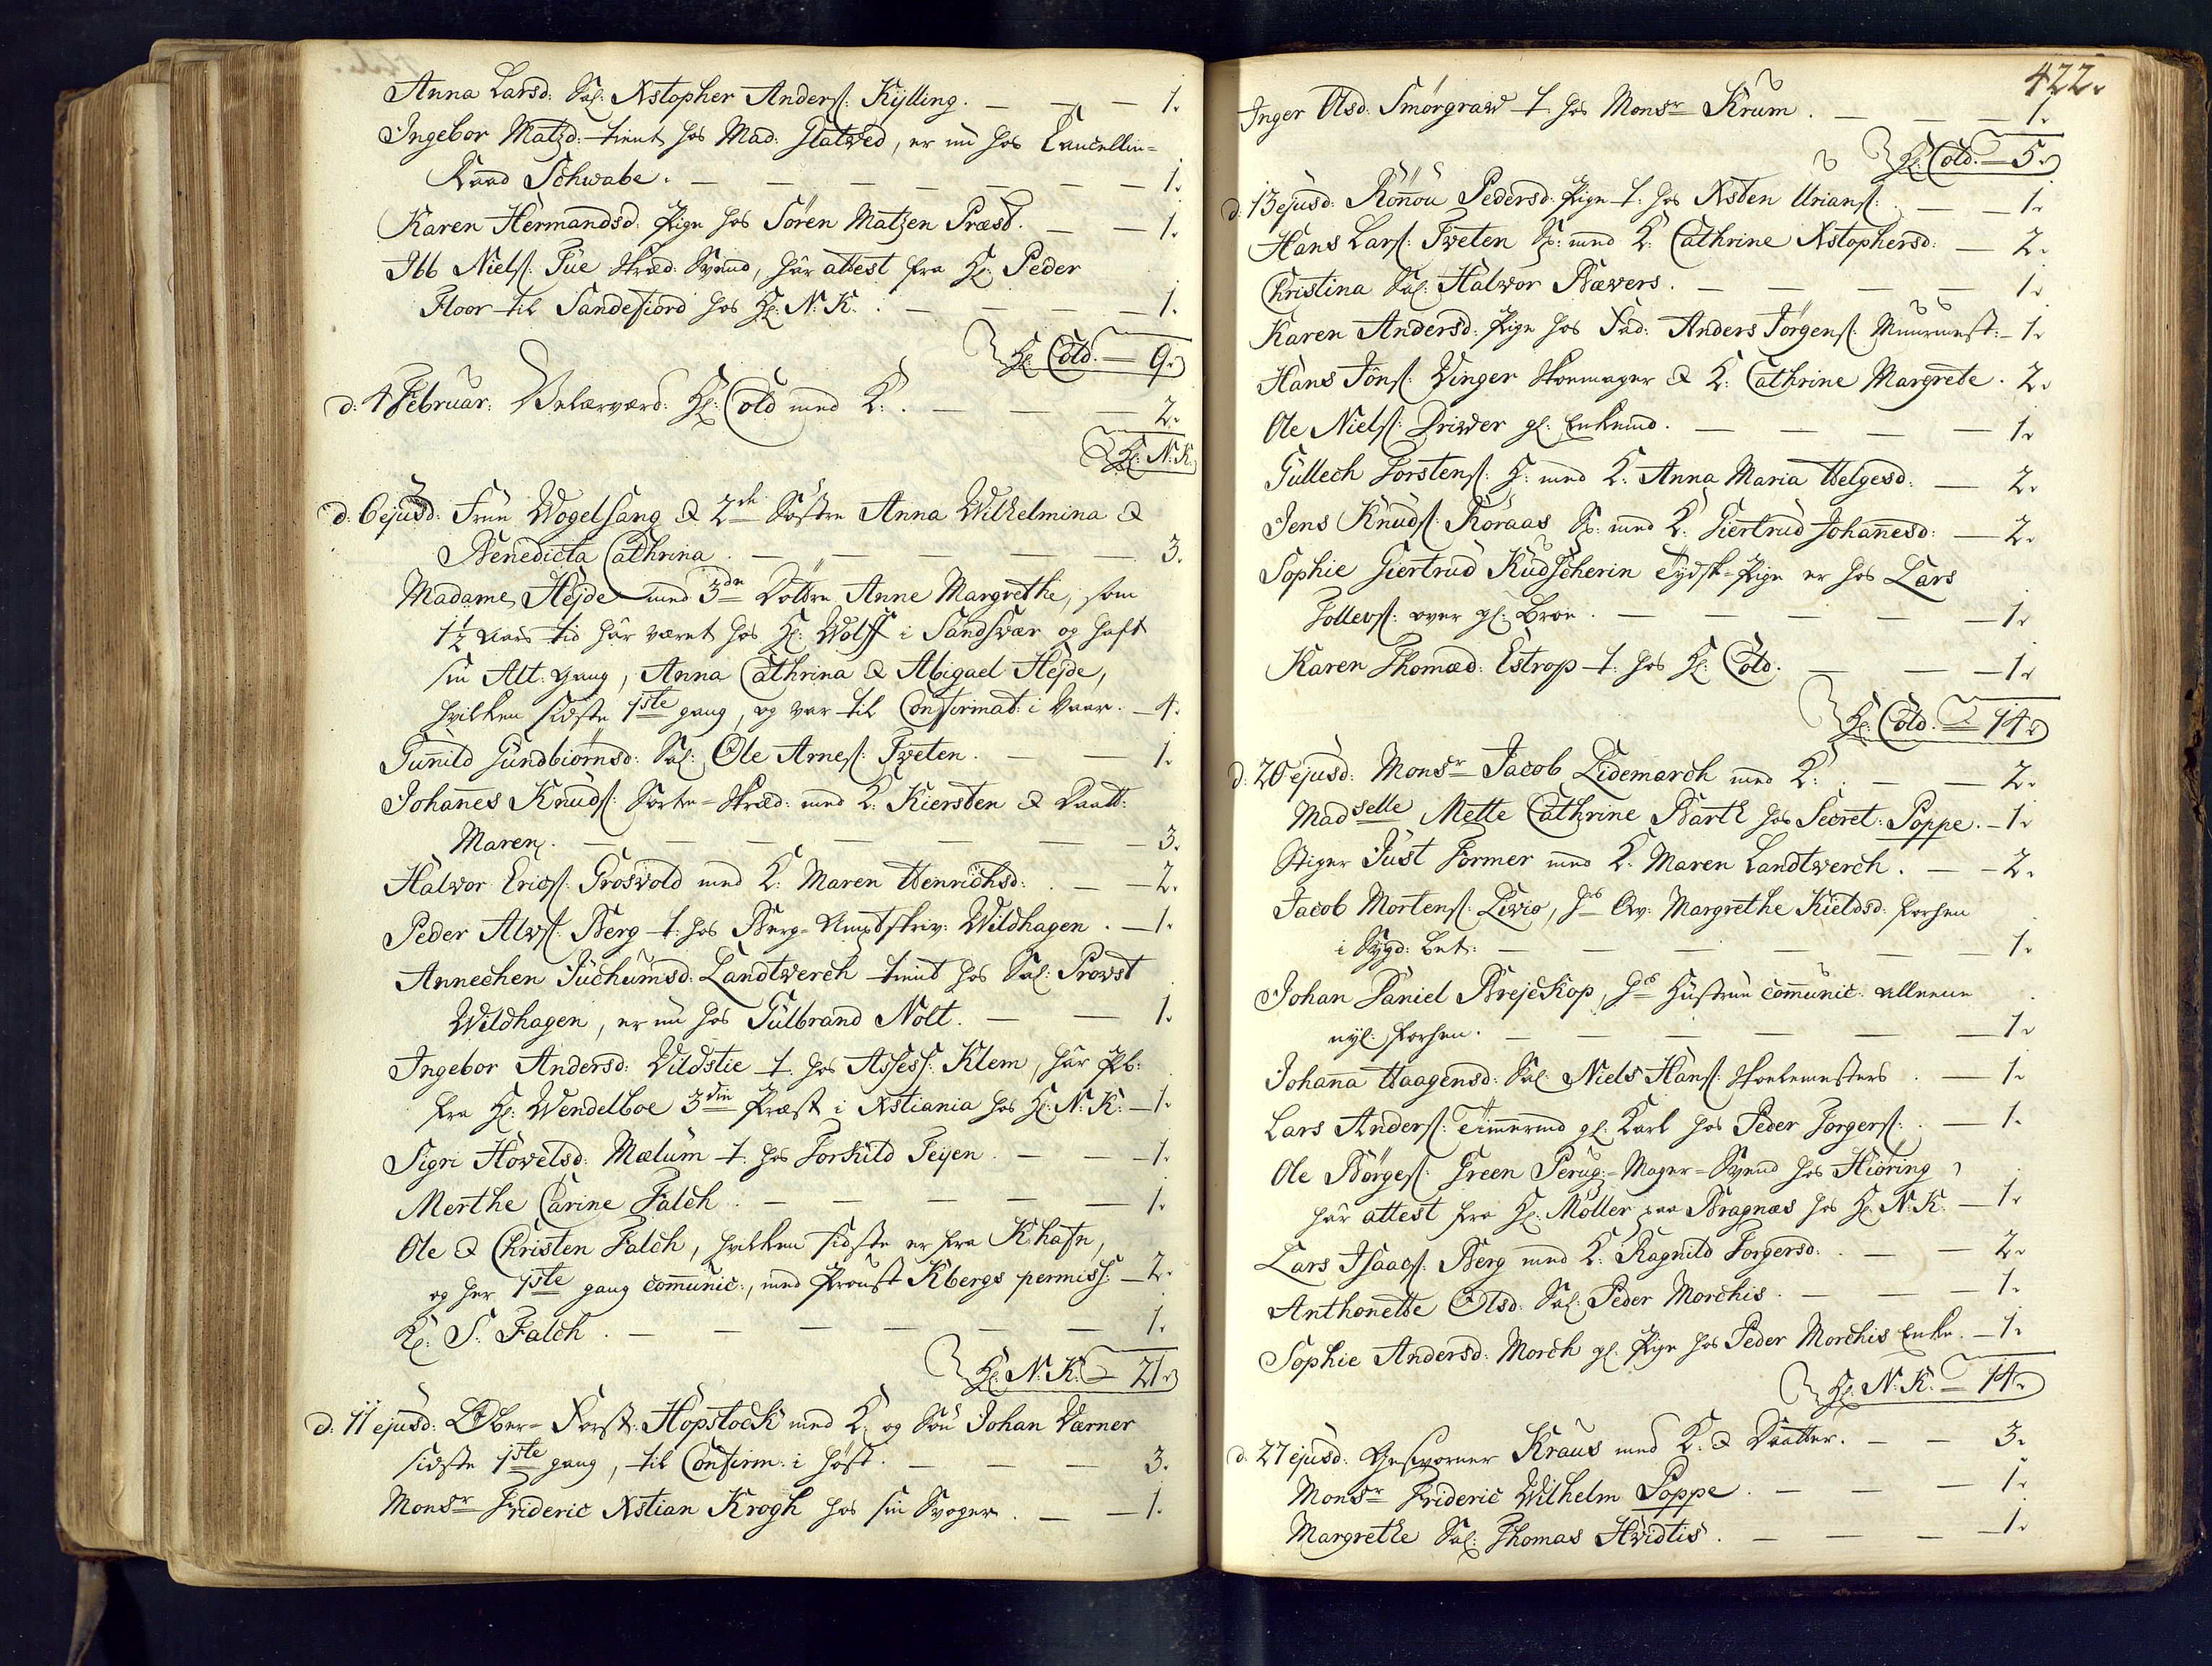 Anna Larsd: Sal: Xstopher Anders: Kÿlling. — — — 1.
Ingebor Matzd: tient hos Mad: Flatved, er nu hos Cancellie=
Raad Schwabe. — — — — — — — 1.
Karen Hermandsd: Pige hos Sören Matzen Præst. — — 1.
Ibb Niels: Tue Skræd: Svend, har attest fra Hr: Peder
Floor til Sandefiord hos Hr: N: K. — — — — 1.
Hr: Cold. = 9.
d: 4 Februar: Velærværd: Hr: Cold med K: — — — 2.
Hr: N: K.
d: 6 ejusd: Frue Vogelsang & 2de Søstre Anna Wilhelmina &
Benedicta Cathrina. — — — — — 3.
Madame Hejde med 3de Döttre Anne Margrethe, som
1½ Aars tid har været hos Hr: Wolff i Sandsvær og haft
sin Alt: Gang, Anna Cathrina & Abigael Hejde,
hvilken sidste 1ste gang, og var til Confirmat: i Vaar. — 4.
Gunild Gundbiörnsd: Sal: Ole Arnes: Tveten. — — 1.
Johannes Knuds: Sorte=Skræd: med K: Kiersten & Daatt:
Maren. — — — — — — — 3.
Halvor Erics: Grosvold med K: Maren Henrichsd: — — 2.
Peder Alvs: Berg t: hos Berg=Amptskriv: Wildhagen. — 1.
Annechen Juchumsd: Landtverch tient hos Sal: Provst
Wildhagen, er nu hos Gulbrand Nolt. — — 1.
Ingebor Andersd: Vildstie t: hos Assess: Klem, har
fra Hr: Wendelboe 3die Præst i Xstiania hos Hr: N: K: — 1.
Sigri Hovelsd: Mælum t: hos Torkild Teÿen. — — 1.
Merthe Carine Falch. — — — — — 1.
Ole & Christen Falch, hvilken sidste er fra K:hafn,
og her 1ste gang communic:, med Provst Kbergs permiss: — 2.
S: Falch. — — — — — — 1.
Hr: N: K: = 21.
d: 11 ejusd: Ober=Forst: Hopstock med K: og Sön Johan Værner
sidste 1ste gang, til Confirm: i Höst. — — — 3.
Monsr Frideric Xstian Krogh hos sin Svoger. — — 1.
422.
Inger Olsd: Smörgrav t: hos Monsr Krum. — — — 1.
Hr: Cold. = 5.
d: 13 ejusd: Rönnou Pedersd: Pige t: hos Xsten Urians: — — 1.
Hans Lars: Tveten Sp: med K: Cathrine Xstophersd: — 2.
Christina Sal: Halvor Bævers. — — — — 1.
Karen Andersd: Pige hos Fad: Anders Jörgens: Muurmest: — 1.
Hans Jöns: Vinger Skoemager & K: Cathrine Margrete. 2.
Ole Niels: Driver gl: Enkemd. — — — — 1.
Gullech Torstens: H: med K: Anna Maria Helgesd: — 2.
Jens Knuds: Röraas Sp: med K: Giertrud Johannesd: — 2.
Sophie Giertrud Kudscherin Tÿdsk=Pige er hos Lars
Tollevs: over gl: Broe. — — — — — 1.
Karen Thomæd: Estrop t: hos Hr: Cold. — — — 1.
Hr: Cold. = 14.
d: 20 ejusd: Monsr Jacob Lidemarch med K: — — 2.
Madselle Mette Cathrine Barth hos Secret: Poppe. — 1.
Stiger Just Former med K: Maren Landtverch. — — 2.
Jacob Mortens: Livio, hs Qv: Margrethe Kieldsd: forhen
i Sÿgd: bet: — — — — — — 1.
Johan Daniel Brejckop, hs Hustrue communic: alleene
nyl: forhen. — — — — — — 1.
Johanna Haagensd: Sal: Niels Hans: Skolemesters — 1.
Lars Anders: Timmermd gl: Karl hos Peder Torgers: — 1.
Ole Börges: Green Perug:=Mager=Svend hos Hiöring,
har attest fra Hr: Möller paa Bragnæs hos Hr: N: K. — 1.
Lars Isaacs: Berg med K: Ragnild Torgersd: — — 2.
Anthonette Olsd: Sal: Peder Morchis. — — — 1.
Sophie Andersd: Morch gl: Pige hos Peder Morchis Enke. — 1.
Hr: N: K. = 14.
d: 27 ejusd: Geschworner Kraus med K: & Daatter. — — 3.
Monsr Frideric Wilhelm Poppe. — — — 1.
Margrethe Sal: Thomas Hvidtis. — — — 1.